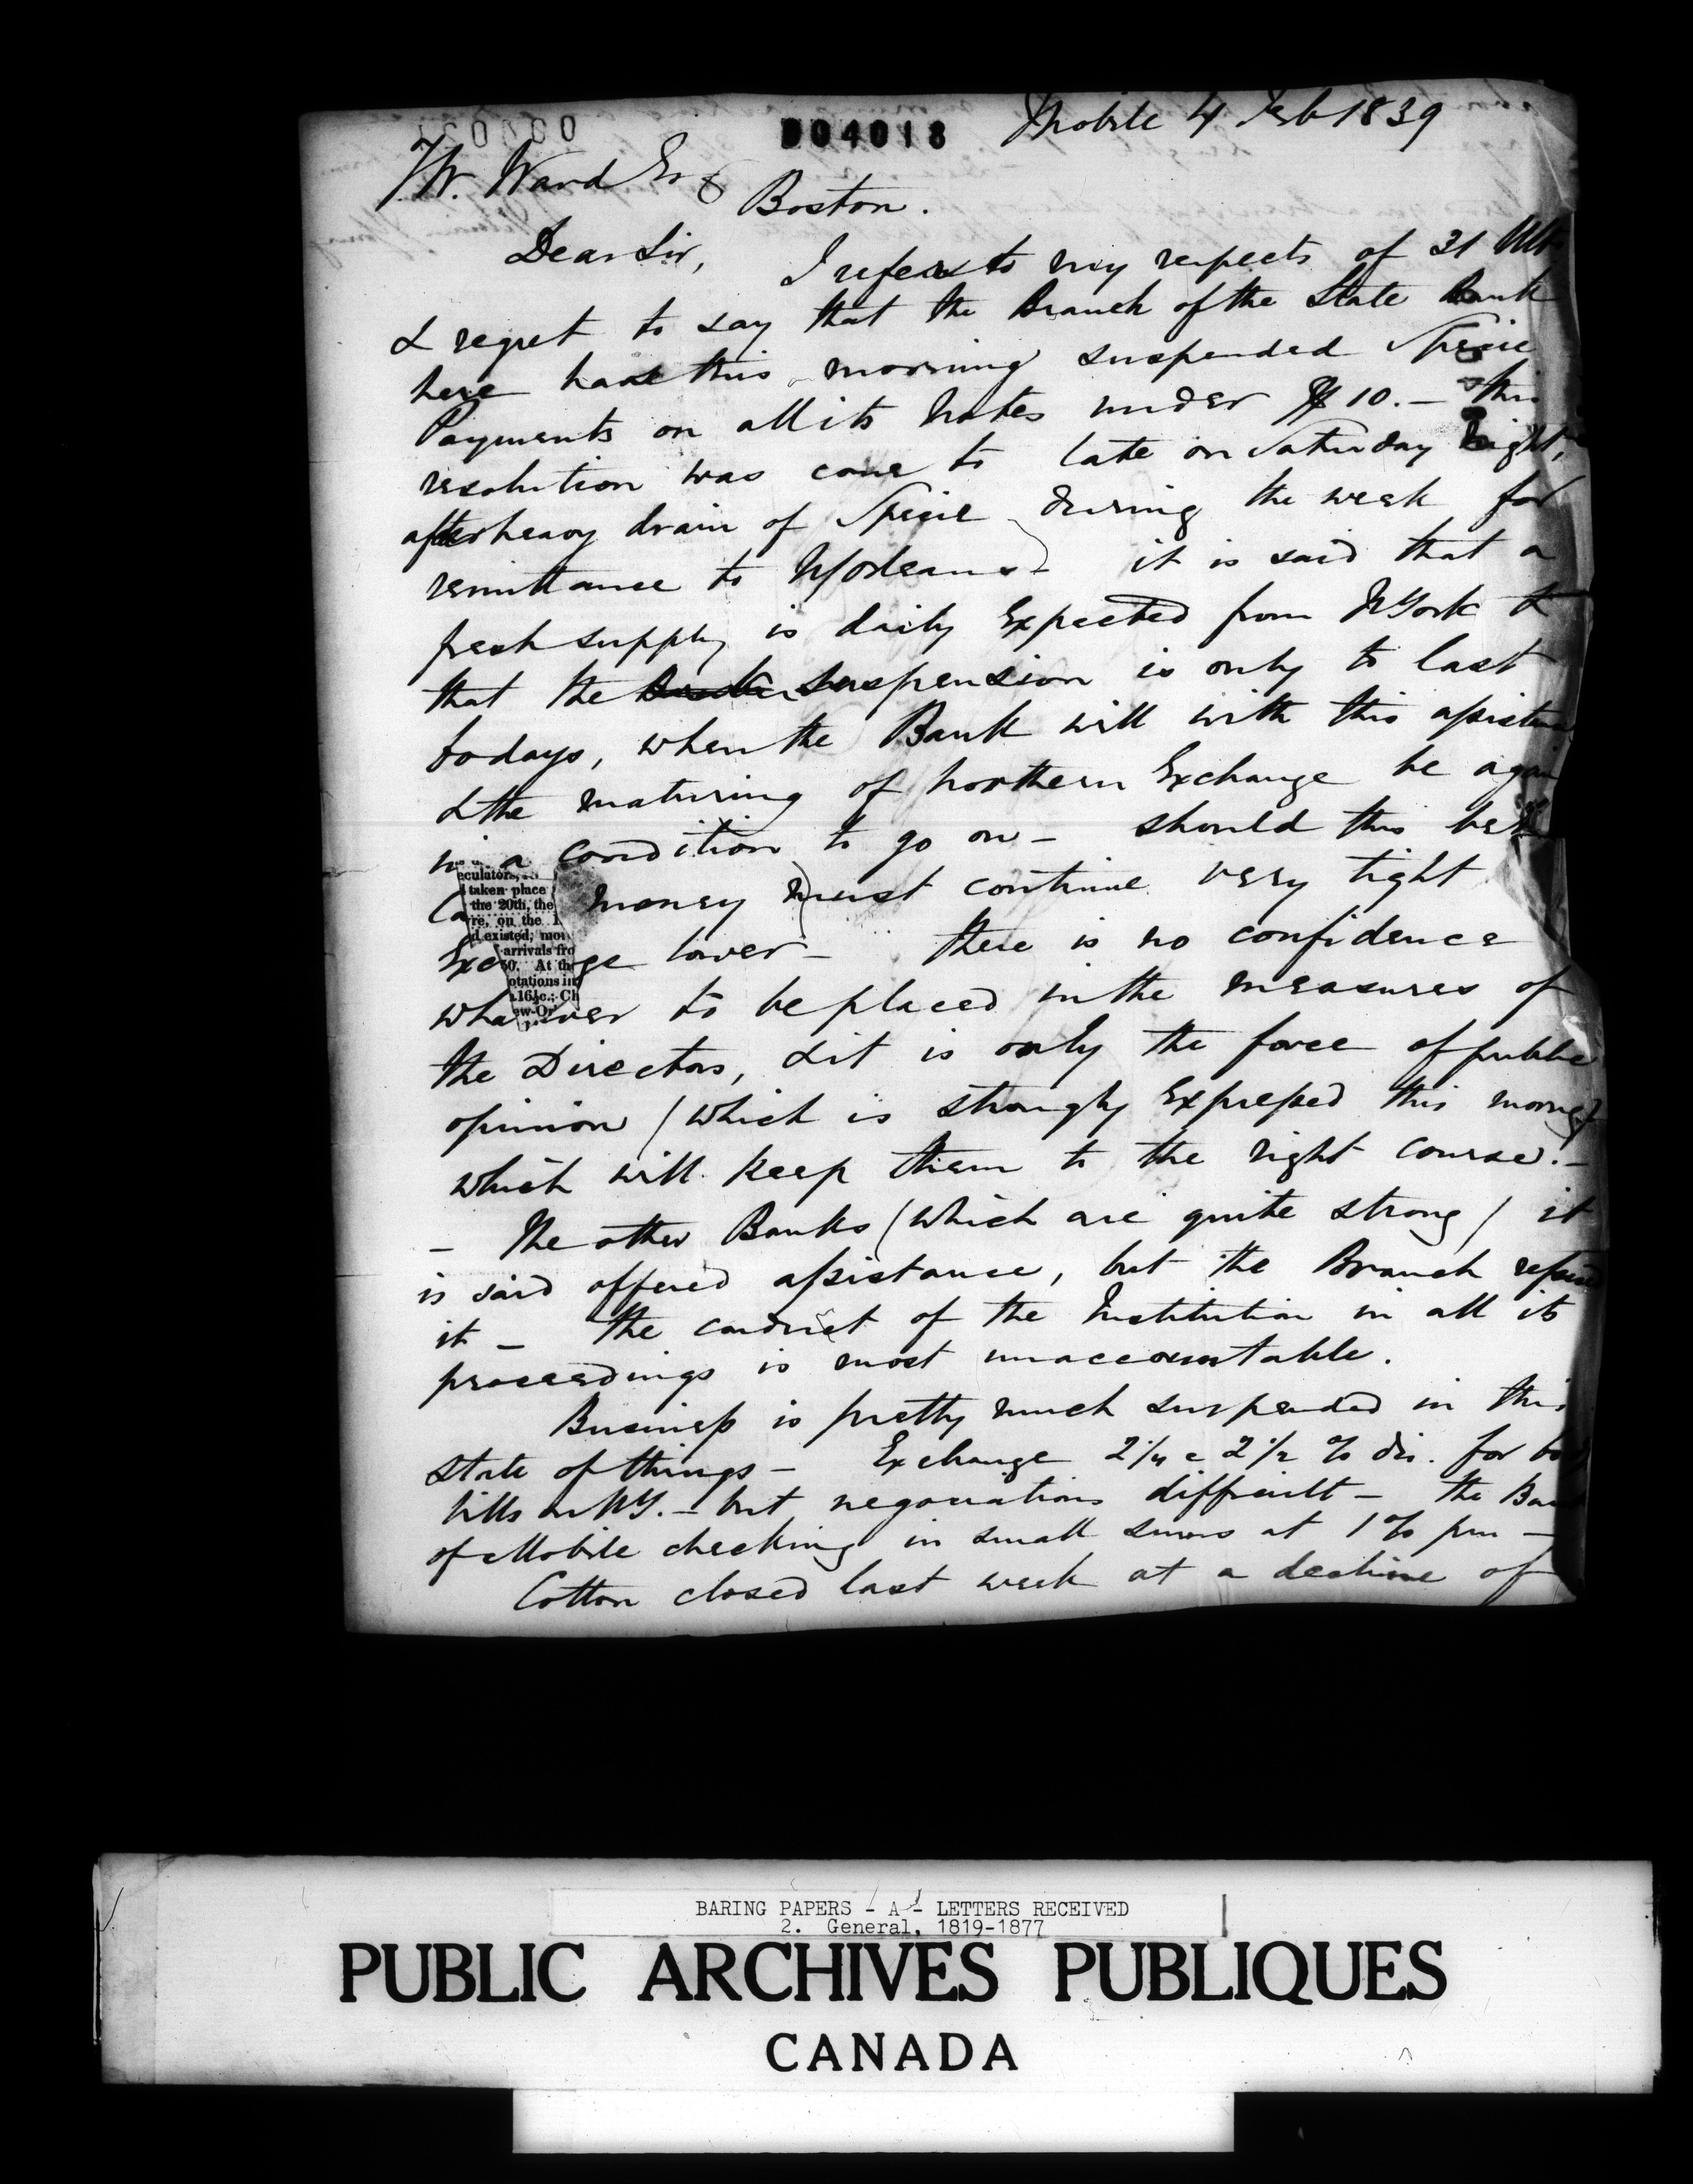 000000
004018 Mobile 4 Feb 1839
T W. Ward Esq
Boston.
Dear Sir, I refer to my respects of 31 Ult
& regret to say that the Branch of the State Bank
here has this morning suspended Specie
Payments on all its Notes under $10. — this
resolution was come to late on Saturday Night,
after heavy drain of Specie during the week for
remittance to NOrleans — it is said that a
fresh supply is daily Expected from NYork &
that the suspension is only to last
60 days, when the Bank will with this assistance
& the maturing of Northern Exchange be again
in a condition to go on — should this be the
Ca money must continue very tight
Exc ge lower — there is no confidence
wha ver to be placed in the measures of
the Directors, & it is only the force of public
opinion (which is strongly Expressed this morng)
which will keep them to the right course. —
— The other Banks (which are quite strong) it
is said offered assistance, but the Branch refused
it — the conduct of the Institution in all its
proceedings is most unaccountable.
Business is pretty much suspended in this
state of things — Exchange 2 1/4 a 2 1/2 % dis. for 60 d
bills on NY. — but negociations difficult — the Bank
of Mobile checking in small sums at 1 % pm —
Cotton closed last week at a decline of
eculators,
taken place
the 20th, the
re, on the 1
d existed; mor
arrivals fro
50. At the
otations in
.16½c.; Ch
ew-Or
BARING PAPERS - A - LETTERS RECEIVED
2. General, 1819-1877
PUBLIC ARCHIVES PUBLIQUES
CANADA